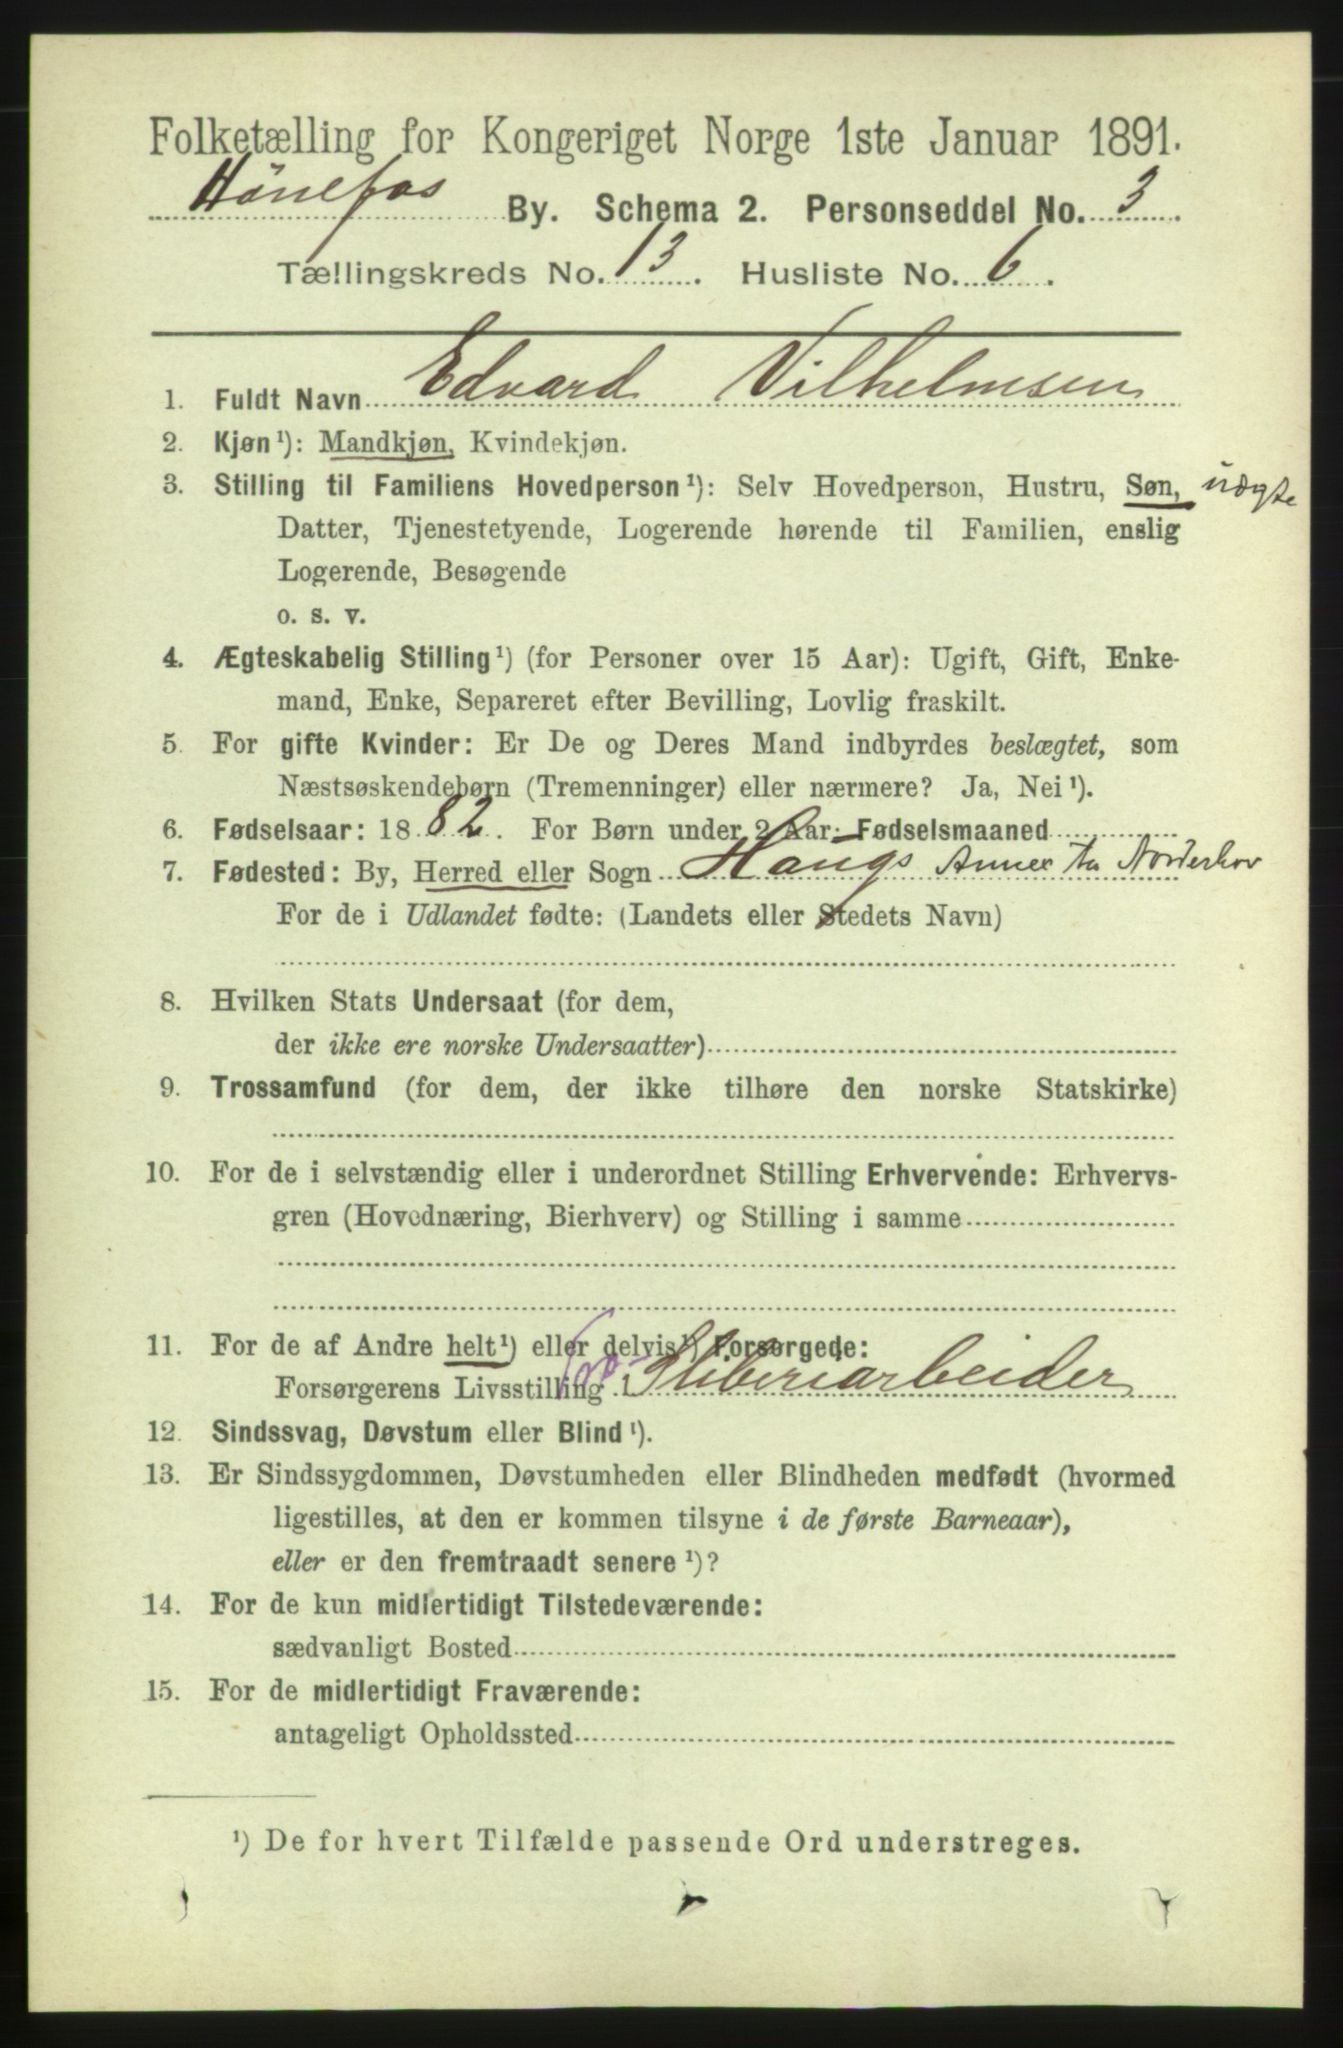 Folketælling for Kongeriget Norge 1ste Januar 1891.
Hönefos By. Schema 2. Personseddel No. 3.
Tællingskreds No. 13. Husliste No. 6.
1. Fuldt Navn Edvard Vilhelmsen
2. Kjøn¹): Mandkjøn, Kvindekjøn.
3. Stilling til Familiens Hovedperson¹): Selv Hovedperson, Hustru, Søn, uægte
Datter, Tjenestetyende, Logerende hørende til Familien, enslig
Logerende, Besøgende
o. s. v.
4. Ægteskabelig Stilling¹) (for Personer over 15 Aar): Ugift, Gift, Enke-
mand, Enke, Separeret efter Bevilling, Lovlig fraskilt.
5. For gifte Kvinder: Er De og Deres Mand indbyrdes beslægtet, som
Næstsøskendebørn (Tremenninger) eller nærmere? Ja, Nei¹).
6. Fødselsaar: 1882. For Børn under 2 Aar: Fødselsmaaned
7. Fødested: By, Herred eller Sogn Haugs Annex til Norderhov
For de i Udlandet fødte: (Landets eller Stedets Navn)
8. Hvilken Stats Undersaat (for dem,
der ikke ere norske Undersaatter)
9. Trossamfund (for dem, der ikke tilhøre den norske Statskirke)
10. For de i selvstændig eller i underordnet Stilling Erhvervende: Erhvervs-
gren (Hovednæring, Bierhverv) og Stilling i samme
11. For de af Andre helt¹) eller delvis¹) Forsørgede:
Forsørgerens Livsstilling Sliberiarbeider
12. Sindssvag, Døvstum eller Blind¹).
13. Er Sindssygdommen, Døvstumheden eller Blindheden medfødt (hvormed
ligestilles, at den er kommen tilsyne i de første Barneaar),
eller er den fremtraadt senere¹)?
14. For de kun midlertidigt Tilstedeværende:
sædvanligt Bosted
15. For de midlertidigt Fraværende:
antageligt Opholdssted
¹) De for hvert Tilfælde passende Ord understreges.